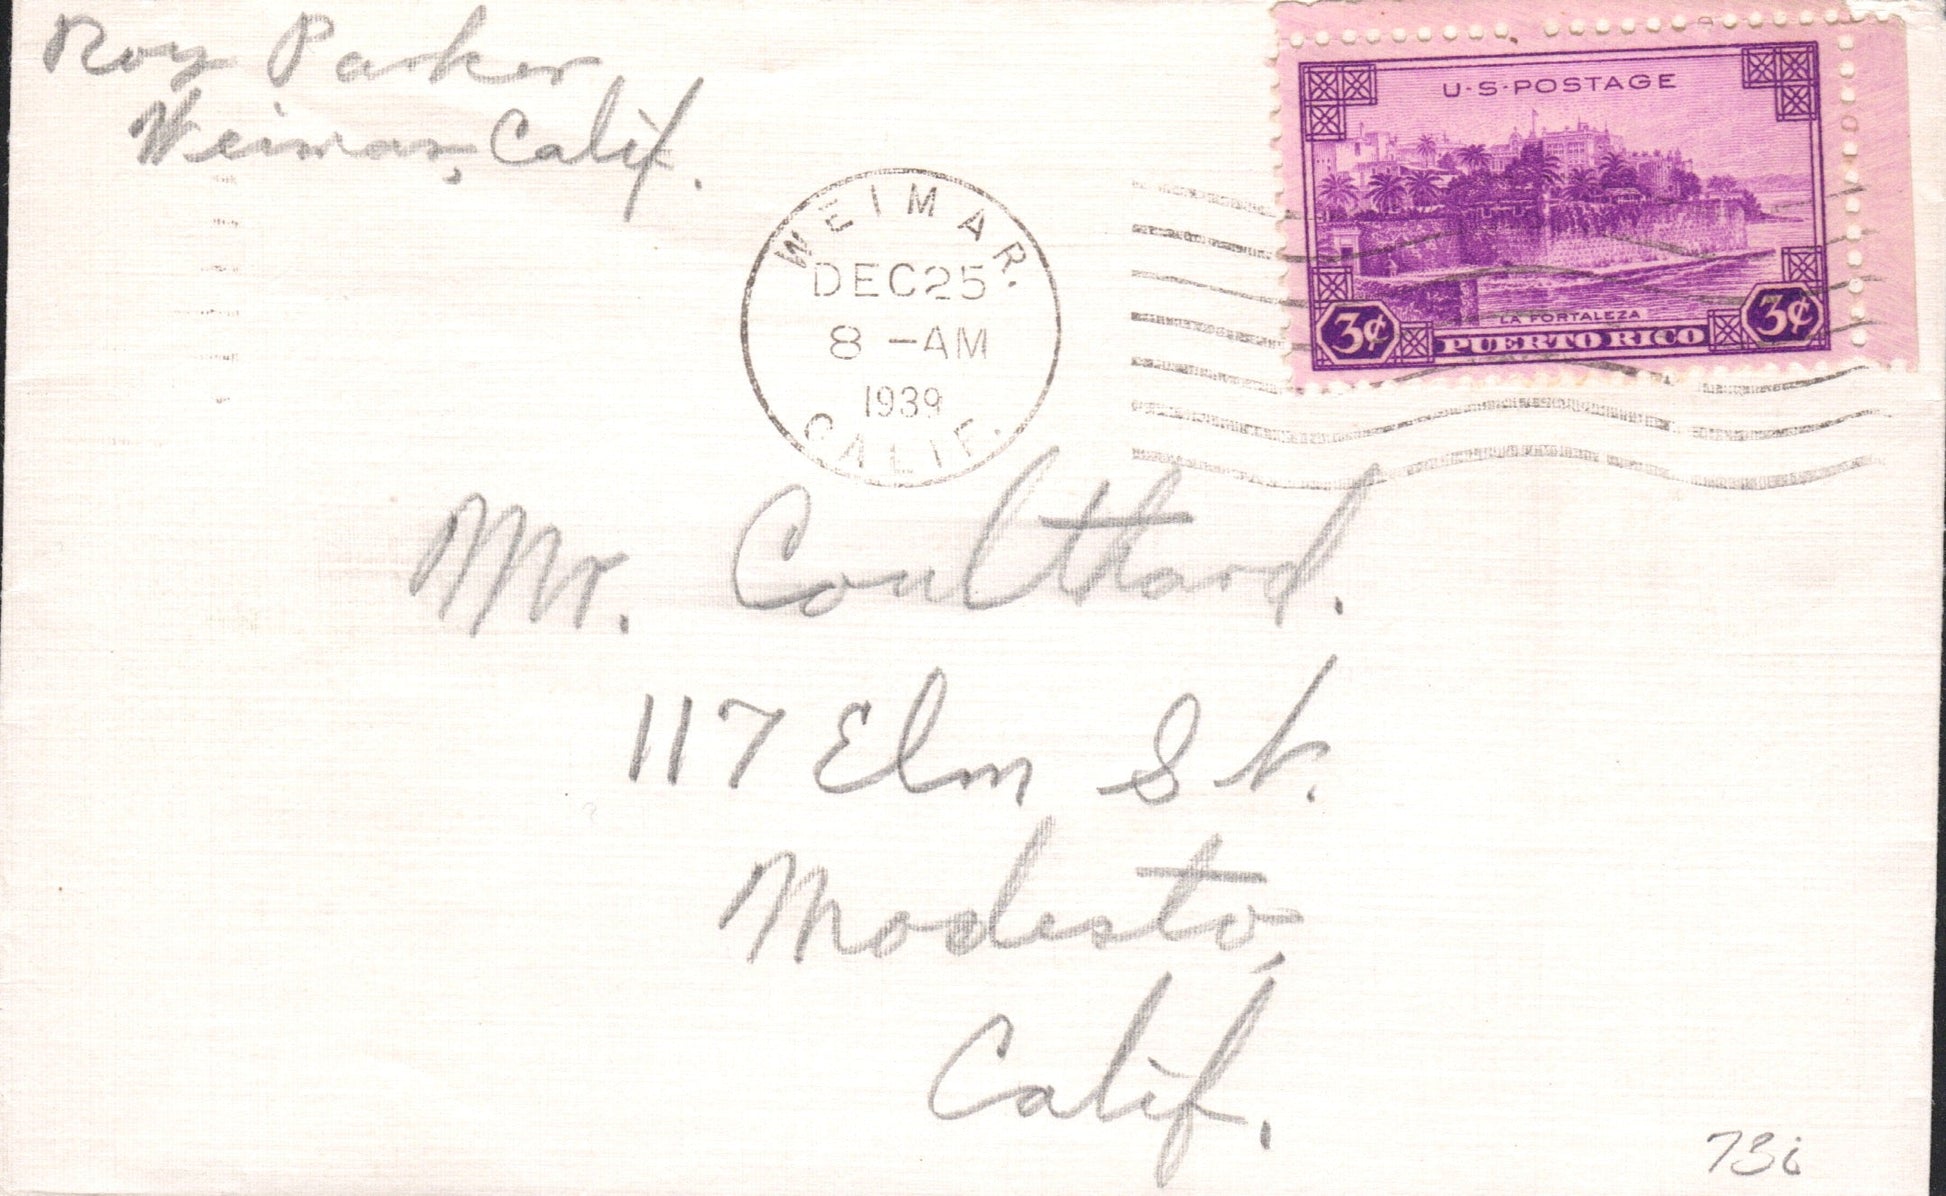 Roy Parker
Weimar, Calif.
U·S·POSTAGE
LA FORTALEZA
3¢ PUERTO RICO 3¢
WEIMAR.
DEC 25
8 -AM
1939
CALIF.
Mr. Coulthard.
117 Elm St.
Modesto,
Calif.